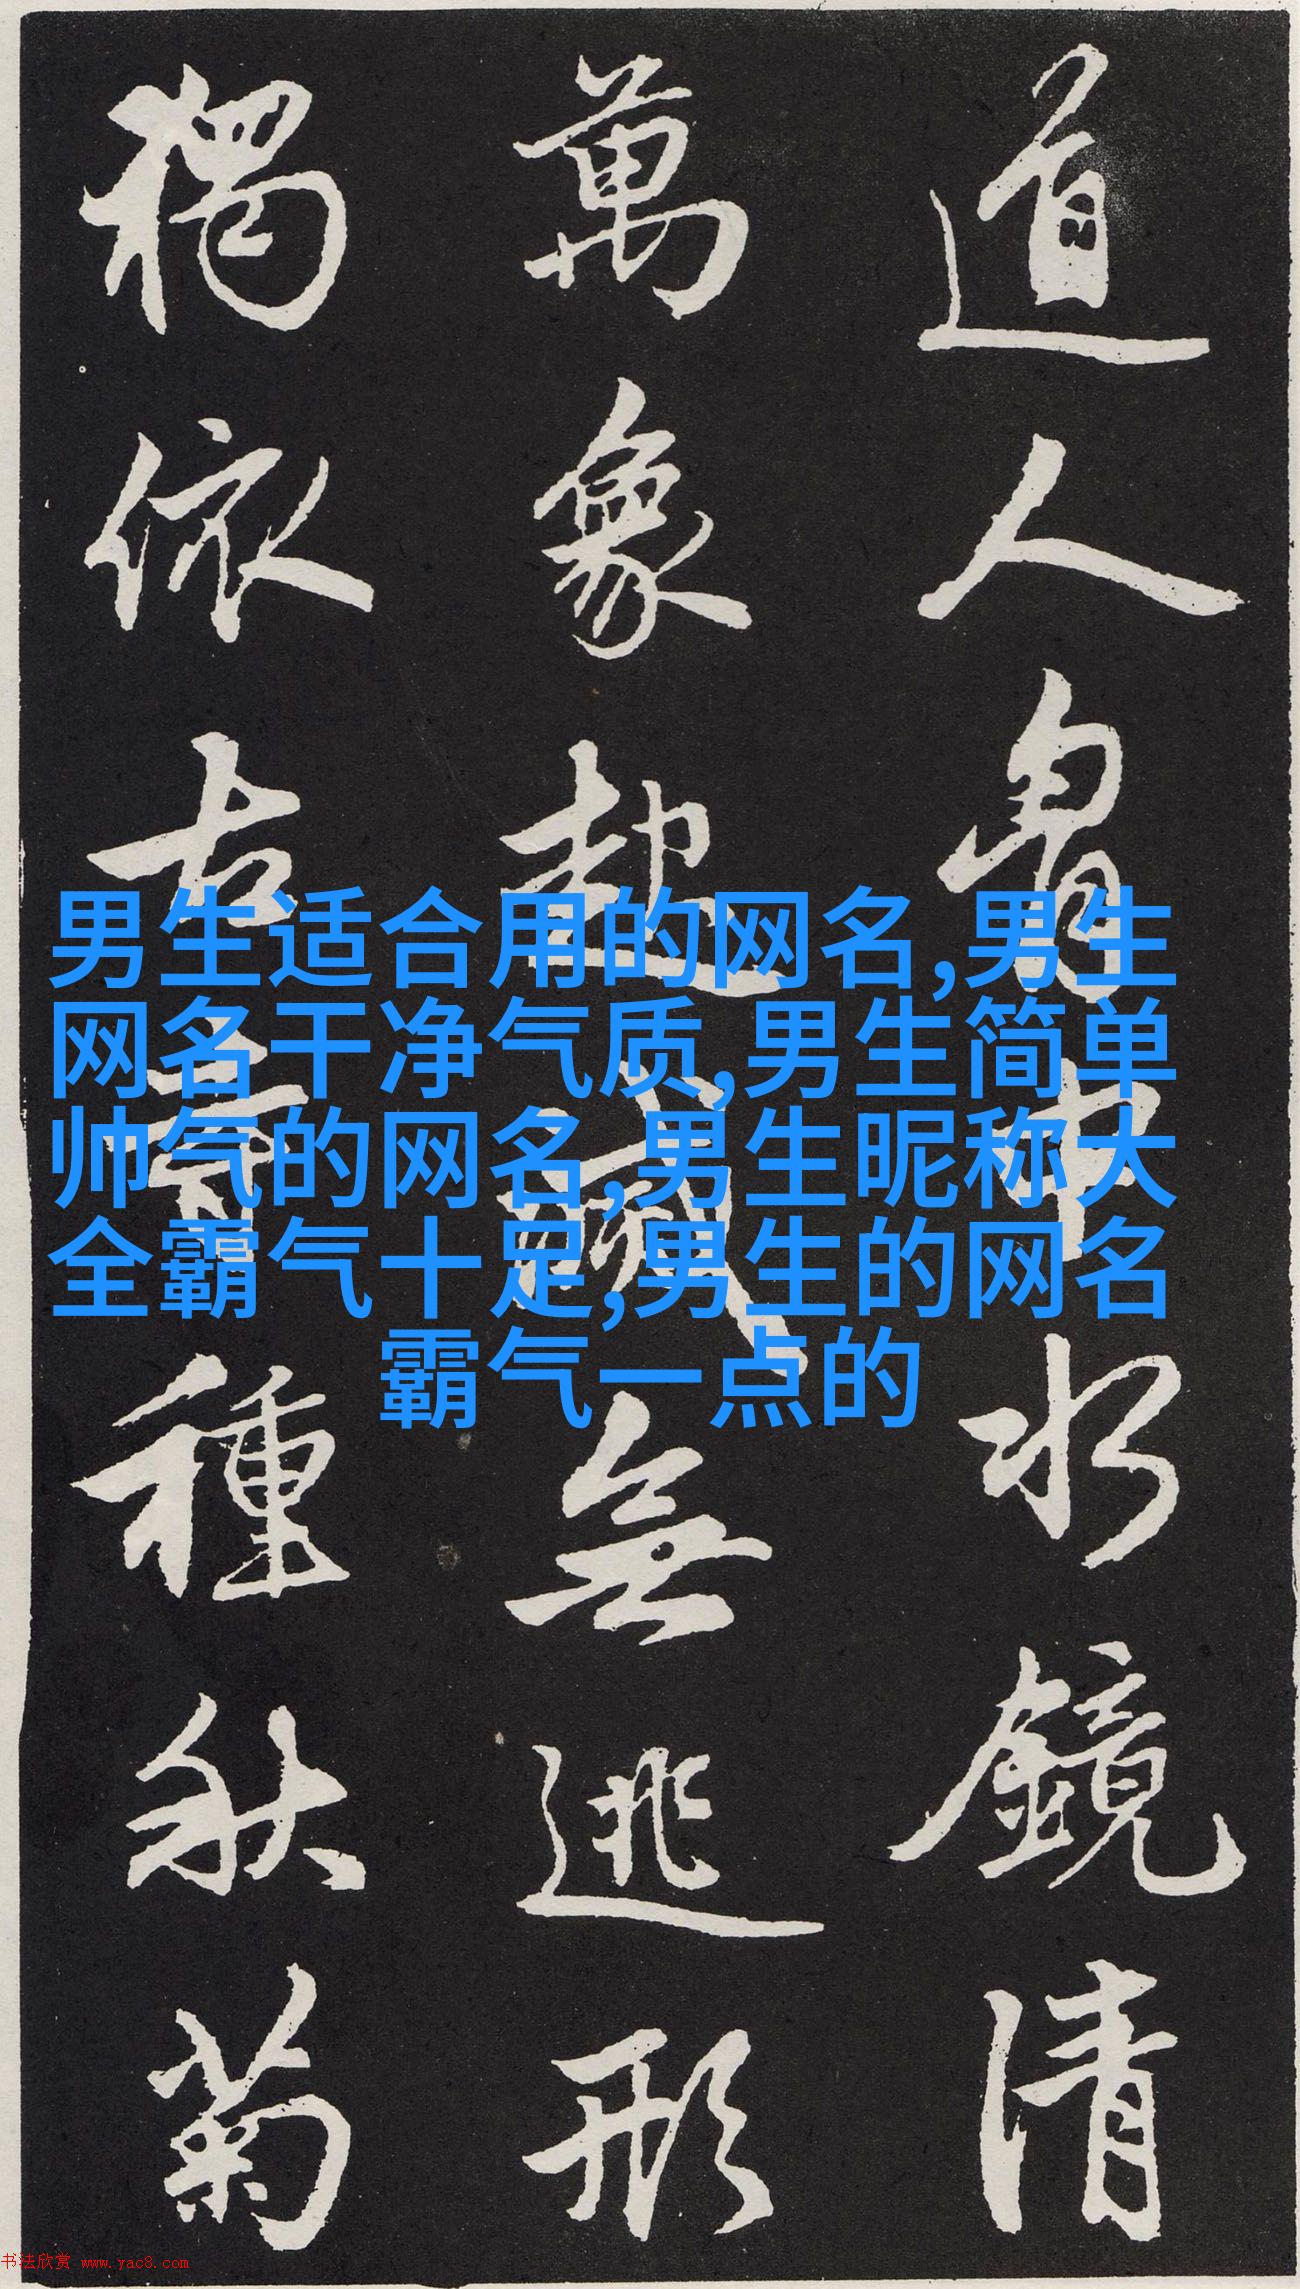 道人胷中水鏡清
萬象起滅無逃形
獨依古寺種秋菊
男生适合用的网名,男生
网名干净气质,男生简单
帅气的网名,男生昵称大
全霸气十足,男生的网名
霸气一点的
书法欣赏 www.yac8.com